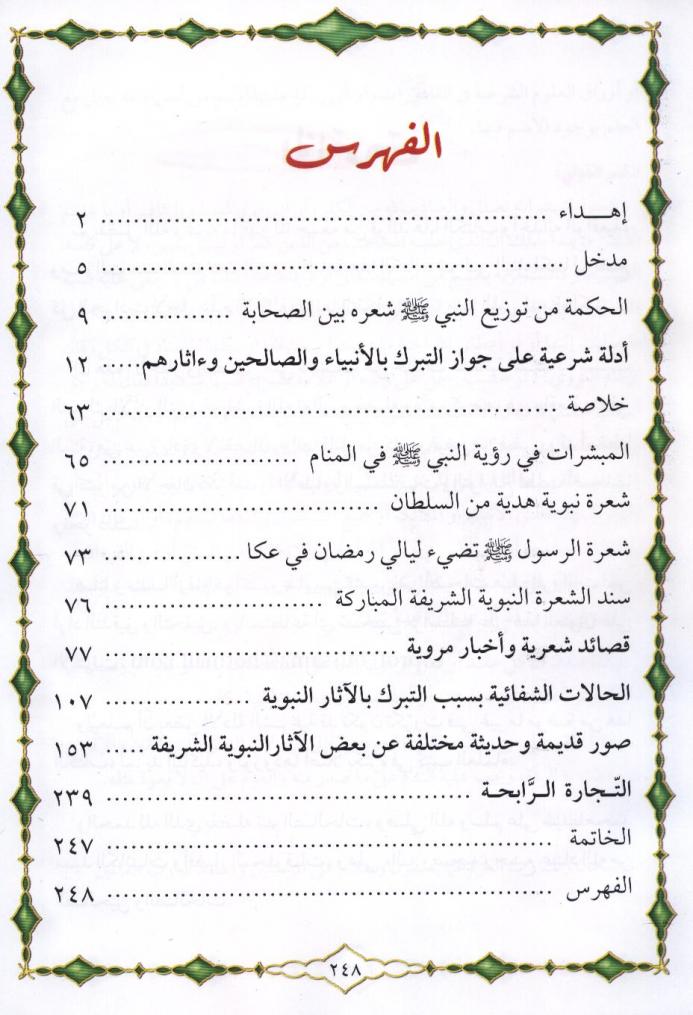 الفهرس
إهـــداء ........................................ ٢
مدخل ........................................ ٥
الحكمة من توزيع النبي ﷺ شعره بين الصحابة .................. ٩
أدلة شرعية على جواز التبرك بالأنبياء والصالحين وءاثارهم..... ١٢
خلاصة ........................................ ٦٣
المبشرات في رؤية النبي ﷺ في المنام ........................ ٦٥
شعرة نبوية هدية من السلطان .............................. ٧١
شعرة الرسول ﷺ تضيء ليالي رمضان في عكا .................. ٧٣
سند الشعرة النبوية الشريفة المباركة ........................ ٧٦
قصائد شعرية وأخبار مروية .............................. ٧٧
الحالات الشفائية بسبب التبرك بالآثار النبوية .................. ١٠٧
صور قديمة وحديثة مختلفة عن بعض الآثارالنبوية الشريفة ١٥٣
التـجارة الـرَّابحـة ........................................ ٢٣٩
الخاتمة ........................................ ٢٤٧
الفهرس ........................................ ٢٤٨
٢٤٨